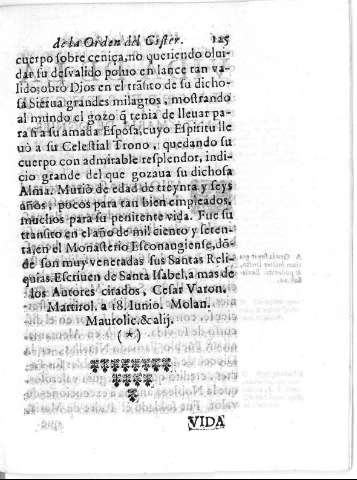 de la Orden del Cister. 125
cuerpo sobre ceniça, no queriendo olui-
dar su desvalido poluo en lance tan va-
lido; obrò Dios en el trãsito de su dicho-
sa Sierua grandes milagros, mostrando
al mundo el gozo q̃ tenia de lleuar pa-
ra si a su amada Esposa, cuyo Espiritu lle
uò a su Celestial Trono, quedando su
cuerpo con admirable resplendor, indi-
cio grande del que gozaua su dichosa
Alma. Muriò de edad de treynta y seys
años, pocos para tan bien empleados,
muchos para su penitente vida. Fue su
transito en el año de mil ciento y seten-
ta, en el Monasterio Esconaugiense, dõ-
de son muy veneradas sus Santas Reli-
quias. Escriuen de Santa Isabel, a mas de
los Autores citados, Cesar Varon.
Martirol. a 18. Iunio. Molan.
Maurolic. & alij.
(*)
VIDA